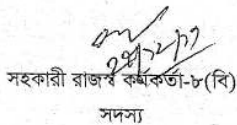 সহকারী রাজস্ব কর্মকর্তা-৮(বি)
সদস্য